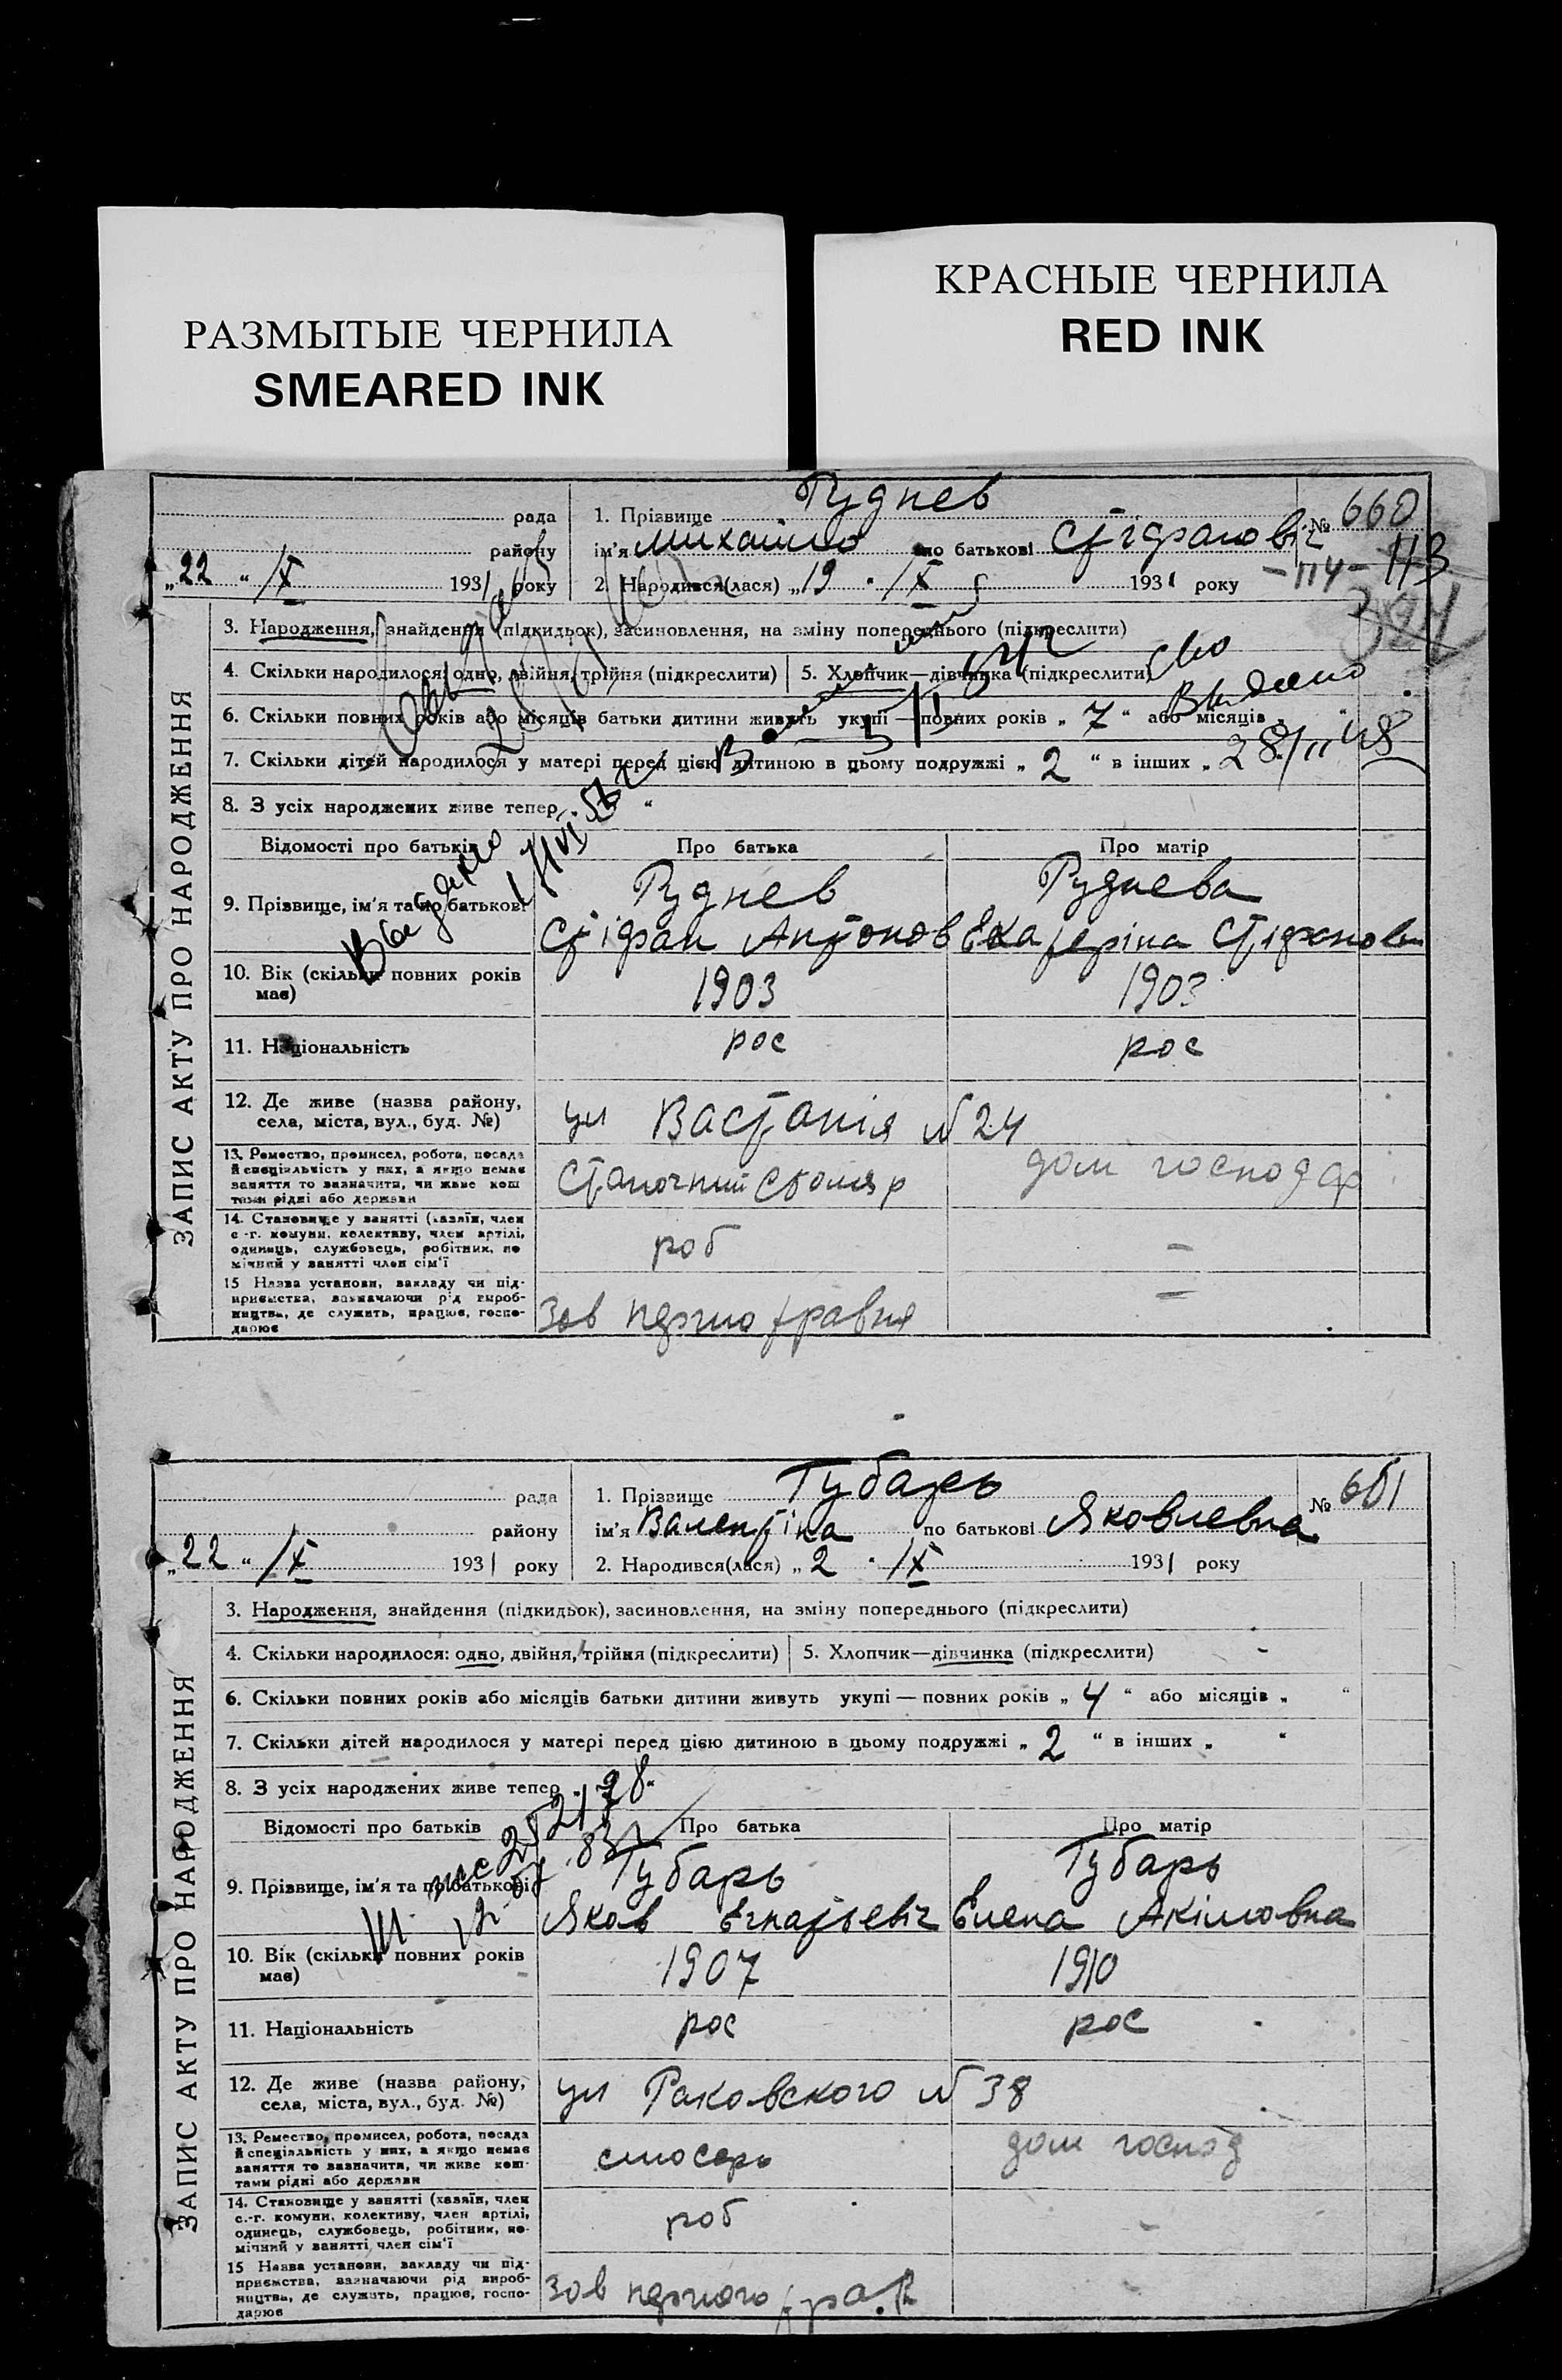 РАЗМЫТЫЕ ЧЕРНИЛА
SMEARED INK
КРАСНЫЕ ЧЕРНИЛА
RED INK
ЗАПИС АКТУ ПРО НАРОДЖЕННЯ
рада
району
„22 “ /IX 1931 року
1. Прізвище Руднев
ім'я Михайло по батькові Стіфановіч
2. Народився(лася) „19 “ IX 1931 року
№ 660
-114- 113
3. Народження, знайдення (підкидьок), засиновлення, на зміну попереднього (підкреслити)
4. Скільки народилося: одно, двійня, трійня (підкреслити) 5. Хлопчик—дівчинка (підкреслити)
6. Скільки повних років або місяців батьки дитини живуть укупі — повних років „ 7 “ або місяців „
7. Скільки дітей народилося у матері перед цією дитиною в цьому подружжі „ 2 “ в інших „
8. З усіх народжених живе тепер
Выдано
28/II 48
Выдано
Відомості про батьків Про батька Про матір
9. Прізвище, ім'я та по батькові Руднев Руднева
Стіфан Антонов Екатеріна Стіфанов
10. Вік (скільки повних років має) 1903 1903
11. Національність рос рос
12. Де живе (назва району, села, міста, вул., буд. №) ул Вастанія N 24
13. Ремество, промисел, робота, посада й спеціяльність у них, а якщо немає заняття то визначити, чи живе коштами рідні або держави Станочний столяр дом господар
14. Становище у занятті (хазяїн, член с.-г. комуни, колективу, член артілі, одинець, службовець, робітник, помічний у занятті член сім'ї роб —
15 Назва установи, закладу чи підприємства, зазначаючи рід виробництва, де служить, працює, господарює Зав першо травня —
ЗАПИС АКТУ ПРО НАРОДЖЕННЯ
рада
району
„22 “ /IX 1931 року
1. Прізвище Губарь
ім'я Валентіна по батькові Яковлевна
2. Народився(лася) „ 2 “ IX 1931 року
№ 661
3. Народження, знайдення (підкидьок), засиновлення, на зміну попереднього (підкреслити)
4. Скільки народилося: одно, двійня, трійня (підкреслити) 5. Хлопчик—дівчинка (підкреслити)
6. Скільки повних років або місяців батьки дитини живуть укупі — повних років „ 4 “ або місяців „ “
7. Скільки дітей народилося у матері перед цією дитиною в цьому подружжі „ 2 “ в інших „ “
8. З усіх народжених живе тепер
Відомості про батьків Про батька Про матір
9. Прізвище, ім'я та по батькові Губарь Губарь
Яков Егнатьевіч Елена Акімовна
10. Вік (скільки повних років має) 1907 1910
11. Національність рос рос
12. Де живе (назва району, села, міста, вул., буд. №) ул Раковского N 38
13. Ремество, промисел, робота, посада й спеціяльність у них, а якщо немає заняття то визначити, чи живе коштами рідні або держави слюсарь дом господ
14. Становище у занятті (хазяїн, член с.-г. комуни, колективу, член артілі, одинець, службовець, робітник, помічний у занятті член сім'ї роб —
15 Назва установи, закладу чи підприємства, зазначаючи рід виробництва, де служить, працює, господарює Зав першого трав